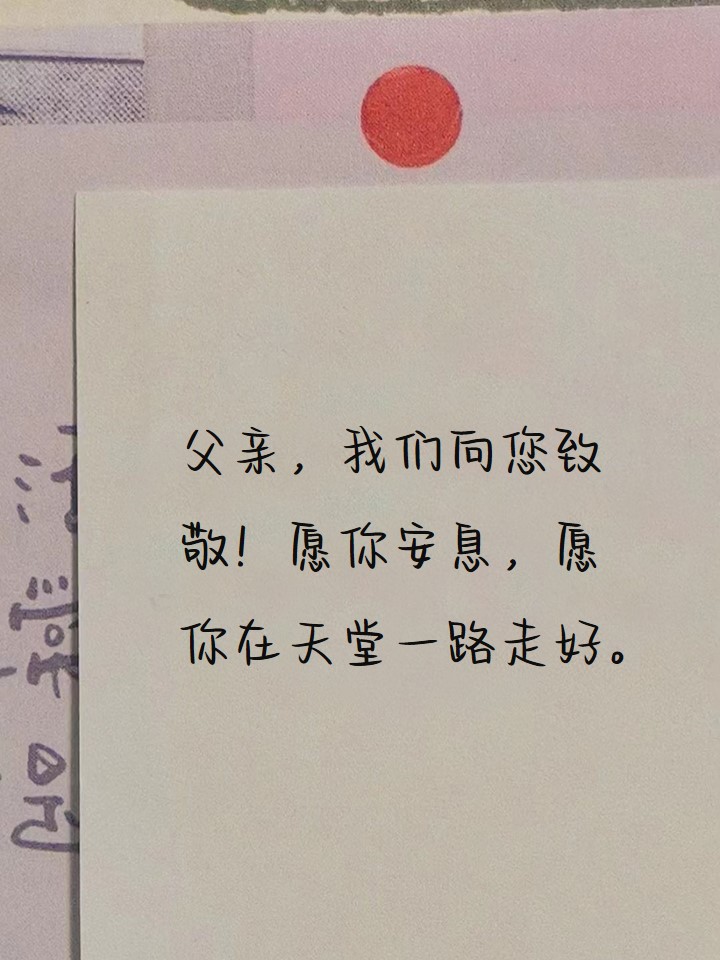 父亲，我们向您致
敬！愿你安息，愿
你在天堂一路走好。